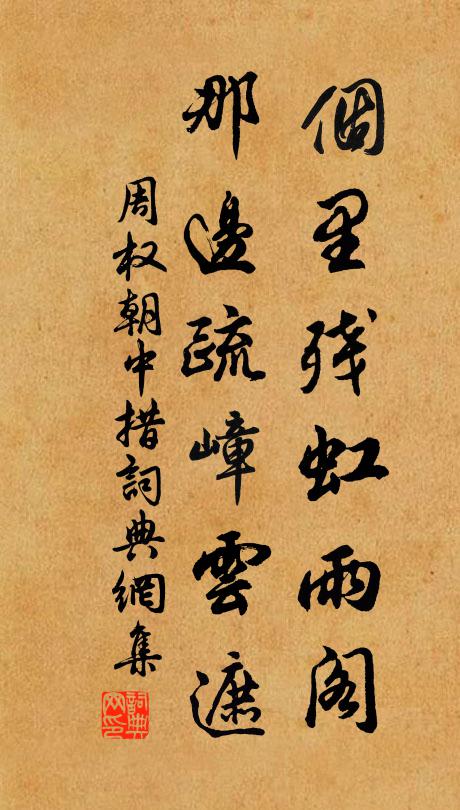 個里残虹雨阁
那邊疏嶂雲遮
周权朝中措詞典網集
詞典网印